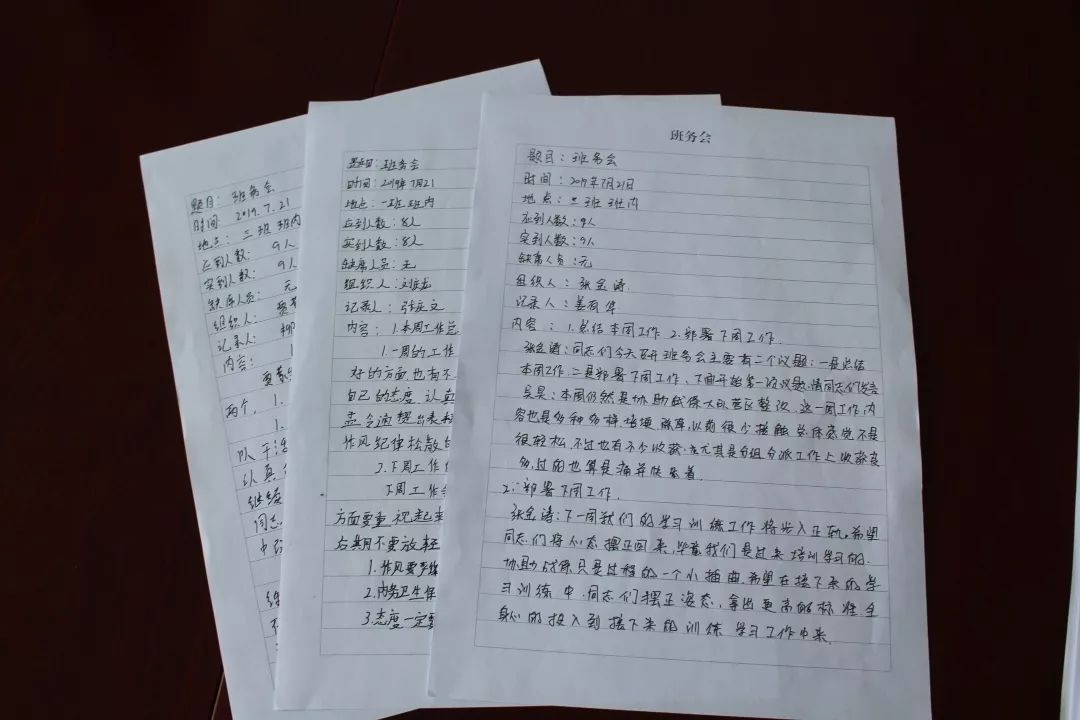 题目: 班务会
时间: 2019.7.21
地点: 三班 班内
应到人数: 9人
实到人数: 9人
缺席人员: 无
组织人:
记录人:
内容:
两个, 1.
1.
队干活
认真
继续
同志
题目: 班务会
时间: 2019年7月21
地点: 一班 班内
应到人数: 8人
实到人数: 8人
缺席人员: 无
组织人: 刘
记录人: 张
内容: 1.本周工作总
1.一周的工作
好的方面,也有不
自己的态度,认真
作风纪律松散
2.下周工作
下周工作
方面要重视起来
右共同不要放轻
1.作风要严
2.内务卫生保
3.态度一定要
班务会
题目: 班务会
时间: 2019年7月21日
地点: 二班 班内
应到人数: 9人
实到人数: 9人
缺席人员: 无
组织人: 张金涛
记录人: 姜有华
内容: 1.总结本周工作 2.部署下周工作.
张金涛: 同志们今天召开班务会主要有二个议题: 一是总结
本周工作,二是部署下周工作、下面开始第一项议题,请同志们发言
吴昊: 本周仍然是协助战保大队营区整改,这一周工作内
容也是多种多样,以前很少接触,总体感觉不是
很轻松,不过也有不少收获,尤其是分组分派工作上收获良
多,过的也算是痛并快乐着.
2: 部署下周工作.
张金涛: 下一周我们的学习训练工作将步入正轨,希望
同志们将心态摆正回来,毕竟我们是过来培训学习的.
协助战保只是过程的一个小插曲,希望在接下来的学
习训练中,同志们摆正姿态,拿出更高的标准全
身心的投入到接下来的训练学习工作中来.